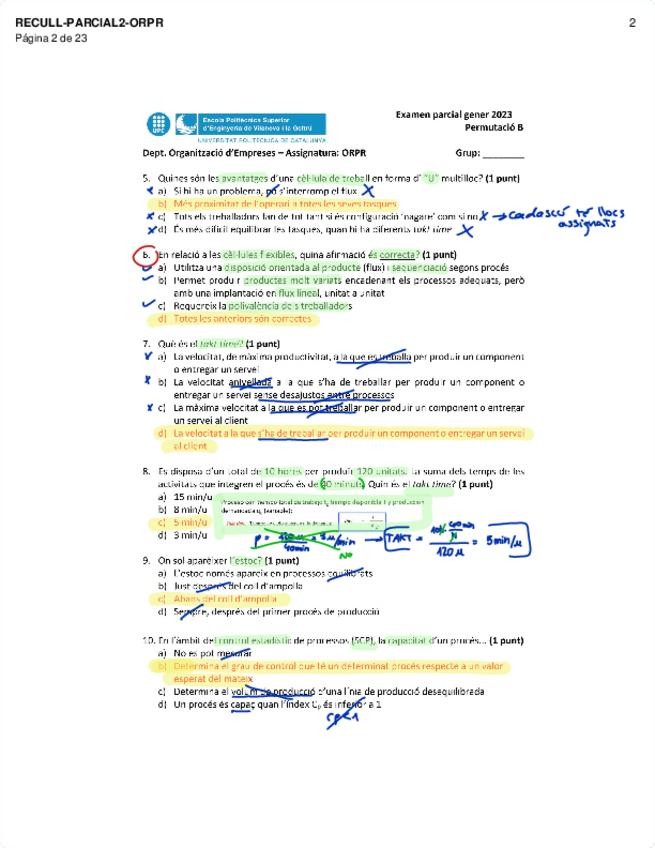 RECULL-PARCIAL2-ORPR
2
Página 2 de 23
UPC
Escola Politècnica Superior
d'Enginyeria de Vilanova i la Geltrú
UNIVERSITAT POLITÈCNICA DE CATALUNYA
Examen parcial gener 2023
Permutació B
Dept. Organització d'Empreses – Assignatura: ORPR
Grup: ________
5. Quines són les avantatges d'una cèl·lula de treball en forma d' "U" multilloc? (1 punt)
a) Si hi ha un problema, no s'interromp el flux
b) Més proximitat de l'operari a totes les seves tasques
c) Tots els treballadors fan de tot tant si és configuració 'nagare' com si no → cadascú té llocs
assignats
d) És més difícil equilibrar les tasques, quan hi ha diferents takt time
6. En relació a les cèl·lules flexibles, quina afirmació és correcta? (1 punt)
a) Utilitza una disposició orientada al producte (flux) i seqüenciació segons procés
b) Permet produir productes molt variats encadenant els processos adequats, però
amb una implantació en flux lineal, unitat a unitat
c) Requereix la polivalència dels treballadors
d) Totes les anteriors són correctes
7. Què és el takt time? (1 punt)
a) La velocitat, de màxima productivitat, a la que es treballa per produir un component
o entregar un servei
b) La velocitat anivellada a la que s'ha de treballar per produir un component o
entregar un servei sense desajustos entre processos
c) La màxima velocitat a la que es pot treballar per produir un component o entregar
un servei al client
d) La velocitat a la que s'ha de treballar per produir un component o entregar un servei
al client
8. Es disposa d'un total de 10 hores per produir 120 unitats. La suma dels temps de les
activitats que integren el procés és de 40 minuts. Quin és el takt time? (1 punt)
a) 15 min/u
b) 8 min/u
c) 5 min/u
d) 3 min/u
P = 120 u / 40min = 3 u/min → TAKT = 60 min / 120 u = 5 min/u
NO
9. On sol aparèixer l'estoc? (1 punt)
a) L'estoc només apareix en processos equilibrats
b) Just després del coll d'ampolla
c) Abans del coll d'ampolla
d) Sempre, després del primer procés de producció
10. En l'àmbit del control estadístic de processos (SCP), la capacitat d'un procés... (1 punt)
a) No es pot mesurar
b) Determina el grau de control que té un determinat procés respecte a un valor
esperat del mateix
c) Determina el volum de producció d'una línia de producció desequilibrada
d) Un procés és capaç quan l'índex Cp és inferior a 1